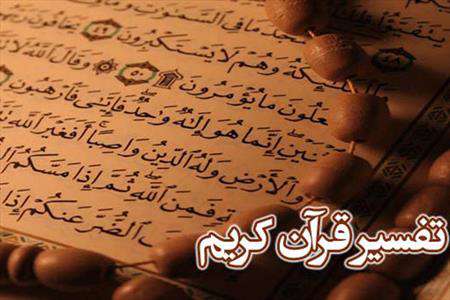 مَا فِى ٱلسَّمَٰوَٰتِ
وَٱلْمَلَٰٓئِكَةُ وَهُمْ لَا يَسْتَكْبِرُونَ ٤٩ يَخَافُونَ
مَا يُؤْمَرُونَ ۩ ٥٠ وَقَالَ ٱللَّهُ لَا
إِنَّمَا هُوَ إِلَٰهٌ وَٰحِدٌ فَإِيَّٰىَ فَٱرْهَبُونِ
وَٱلْأَرْضِ وَلَهُ ٱلدِّينُ وَاصِبًا أَفَغَيْرَ ٱللَّهِ
فَمِنَ ٱللَّهِ ثُمَّ إِذَا مَسَّكُمُ
ٱلضُّرَّ عَنكُمْ إِذَا
تفسیر قرآن کریم